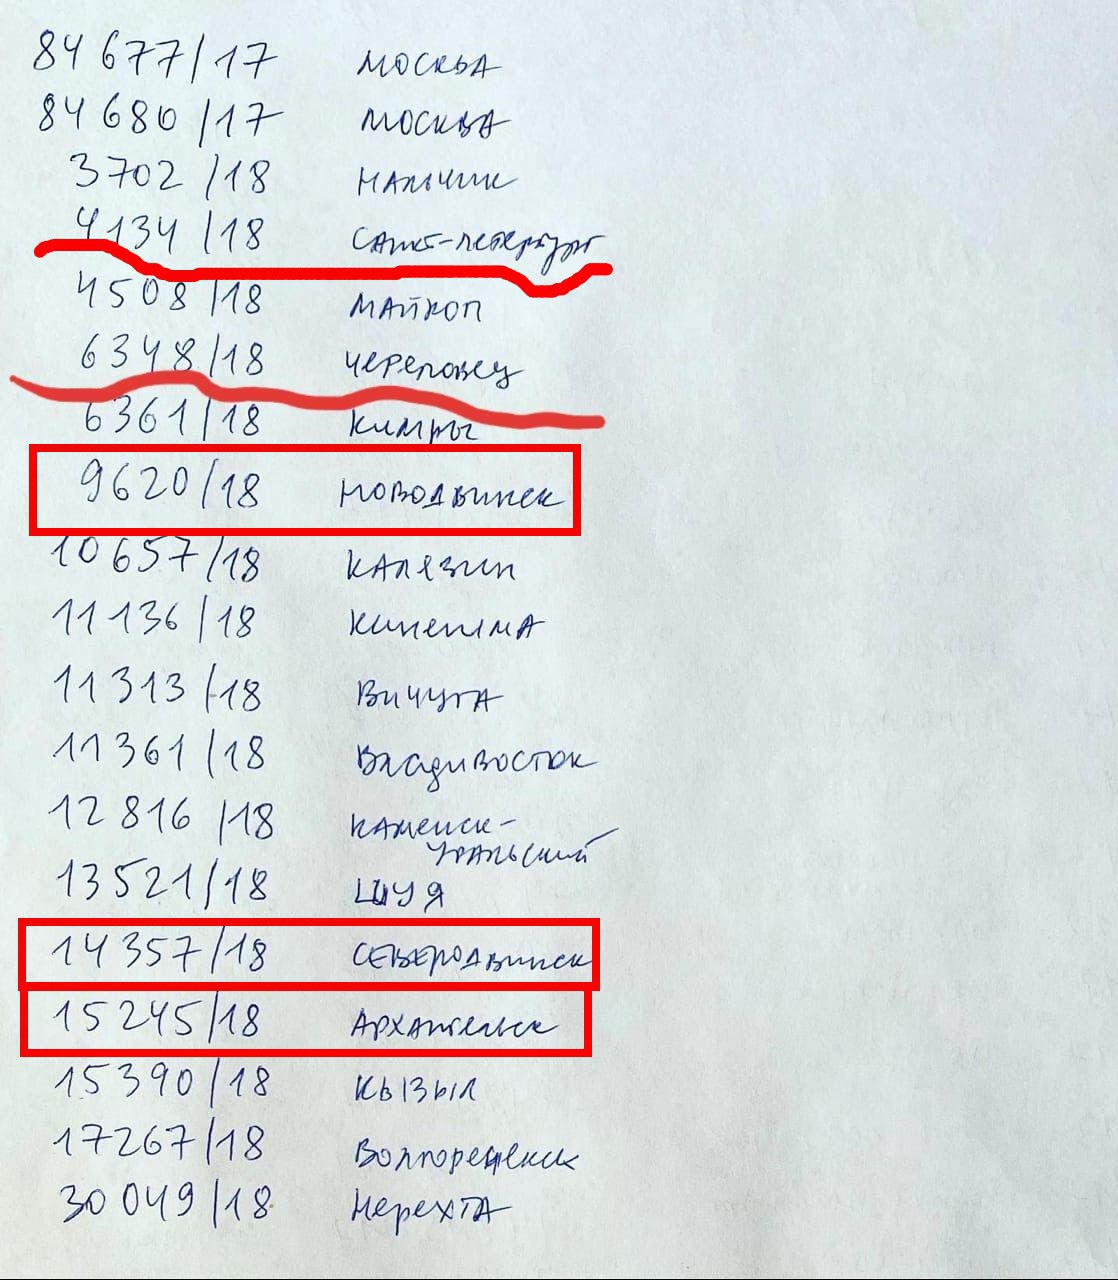 84 677/17 МОСКВА
84 680/17 МОСКВА
3702/18 НАЛЬЧИК
4134/18 САНКТ-ПЕТЕРБУРГ
4508/18 МАЙКОП
6348/18 ЧЕРЕПОВЕЦ
6361/18 КИМРЫ
9620/18 НОВОДВИНСК
10657/18 КАЛЯЗИН
11136/18 КИНЕШМА
11313/18 ВИЧУГА
11361/18 ВЛАДИВОСТОК
12816/18 КАМЕНСК-
УРАЛЬСКИЙ
13521/18 ШУЯ
14357/18 СЕВЕРОДВИНСК
15245/18 АРХАНГЕЛЬСК
15390/18 КЫЗЫЛ
17267/18 ВОЛГОРЕЧЕНСК
30049/18 НЕРЕХТА